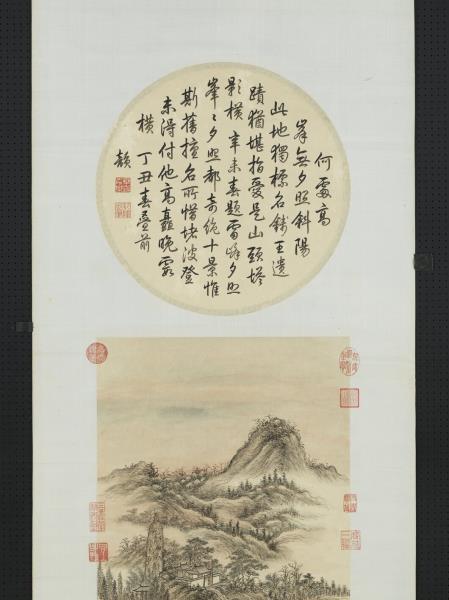 何處高
峯無夕照斜陽
此地獨標名錢王遺
蹟猶堪指愛是山頭塔
影橫 辛未春題雷峰夕照
峯〻夕照都奇絶十景惟
斯舊擅名所惜堵波登
未得付他高矗晚霞
橫 丁丑春疊前
韻